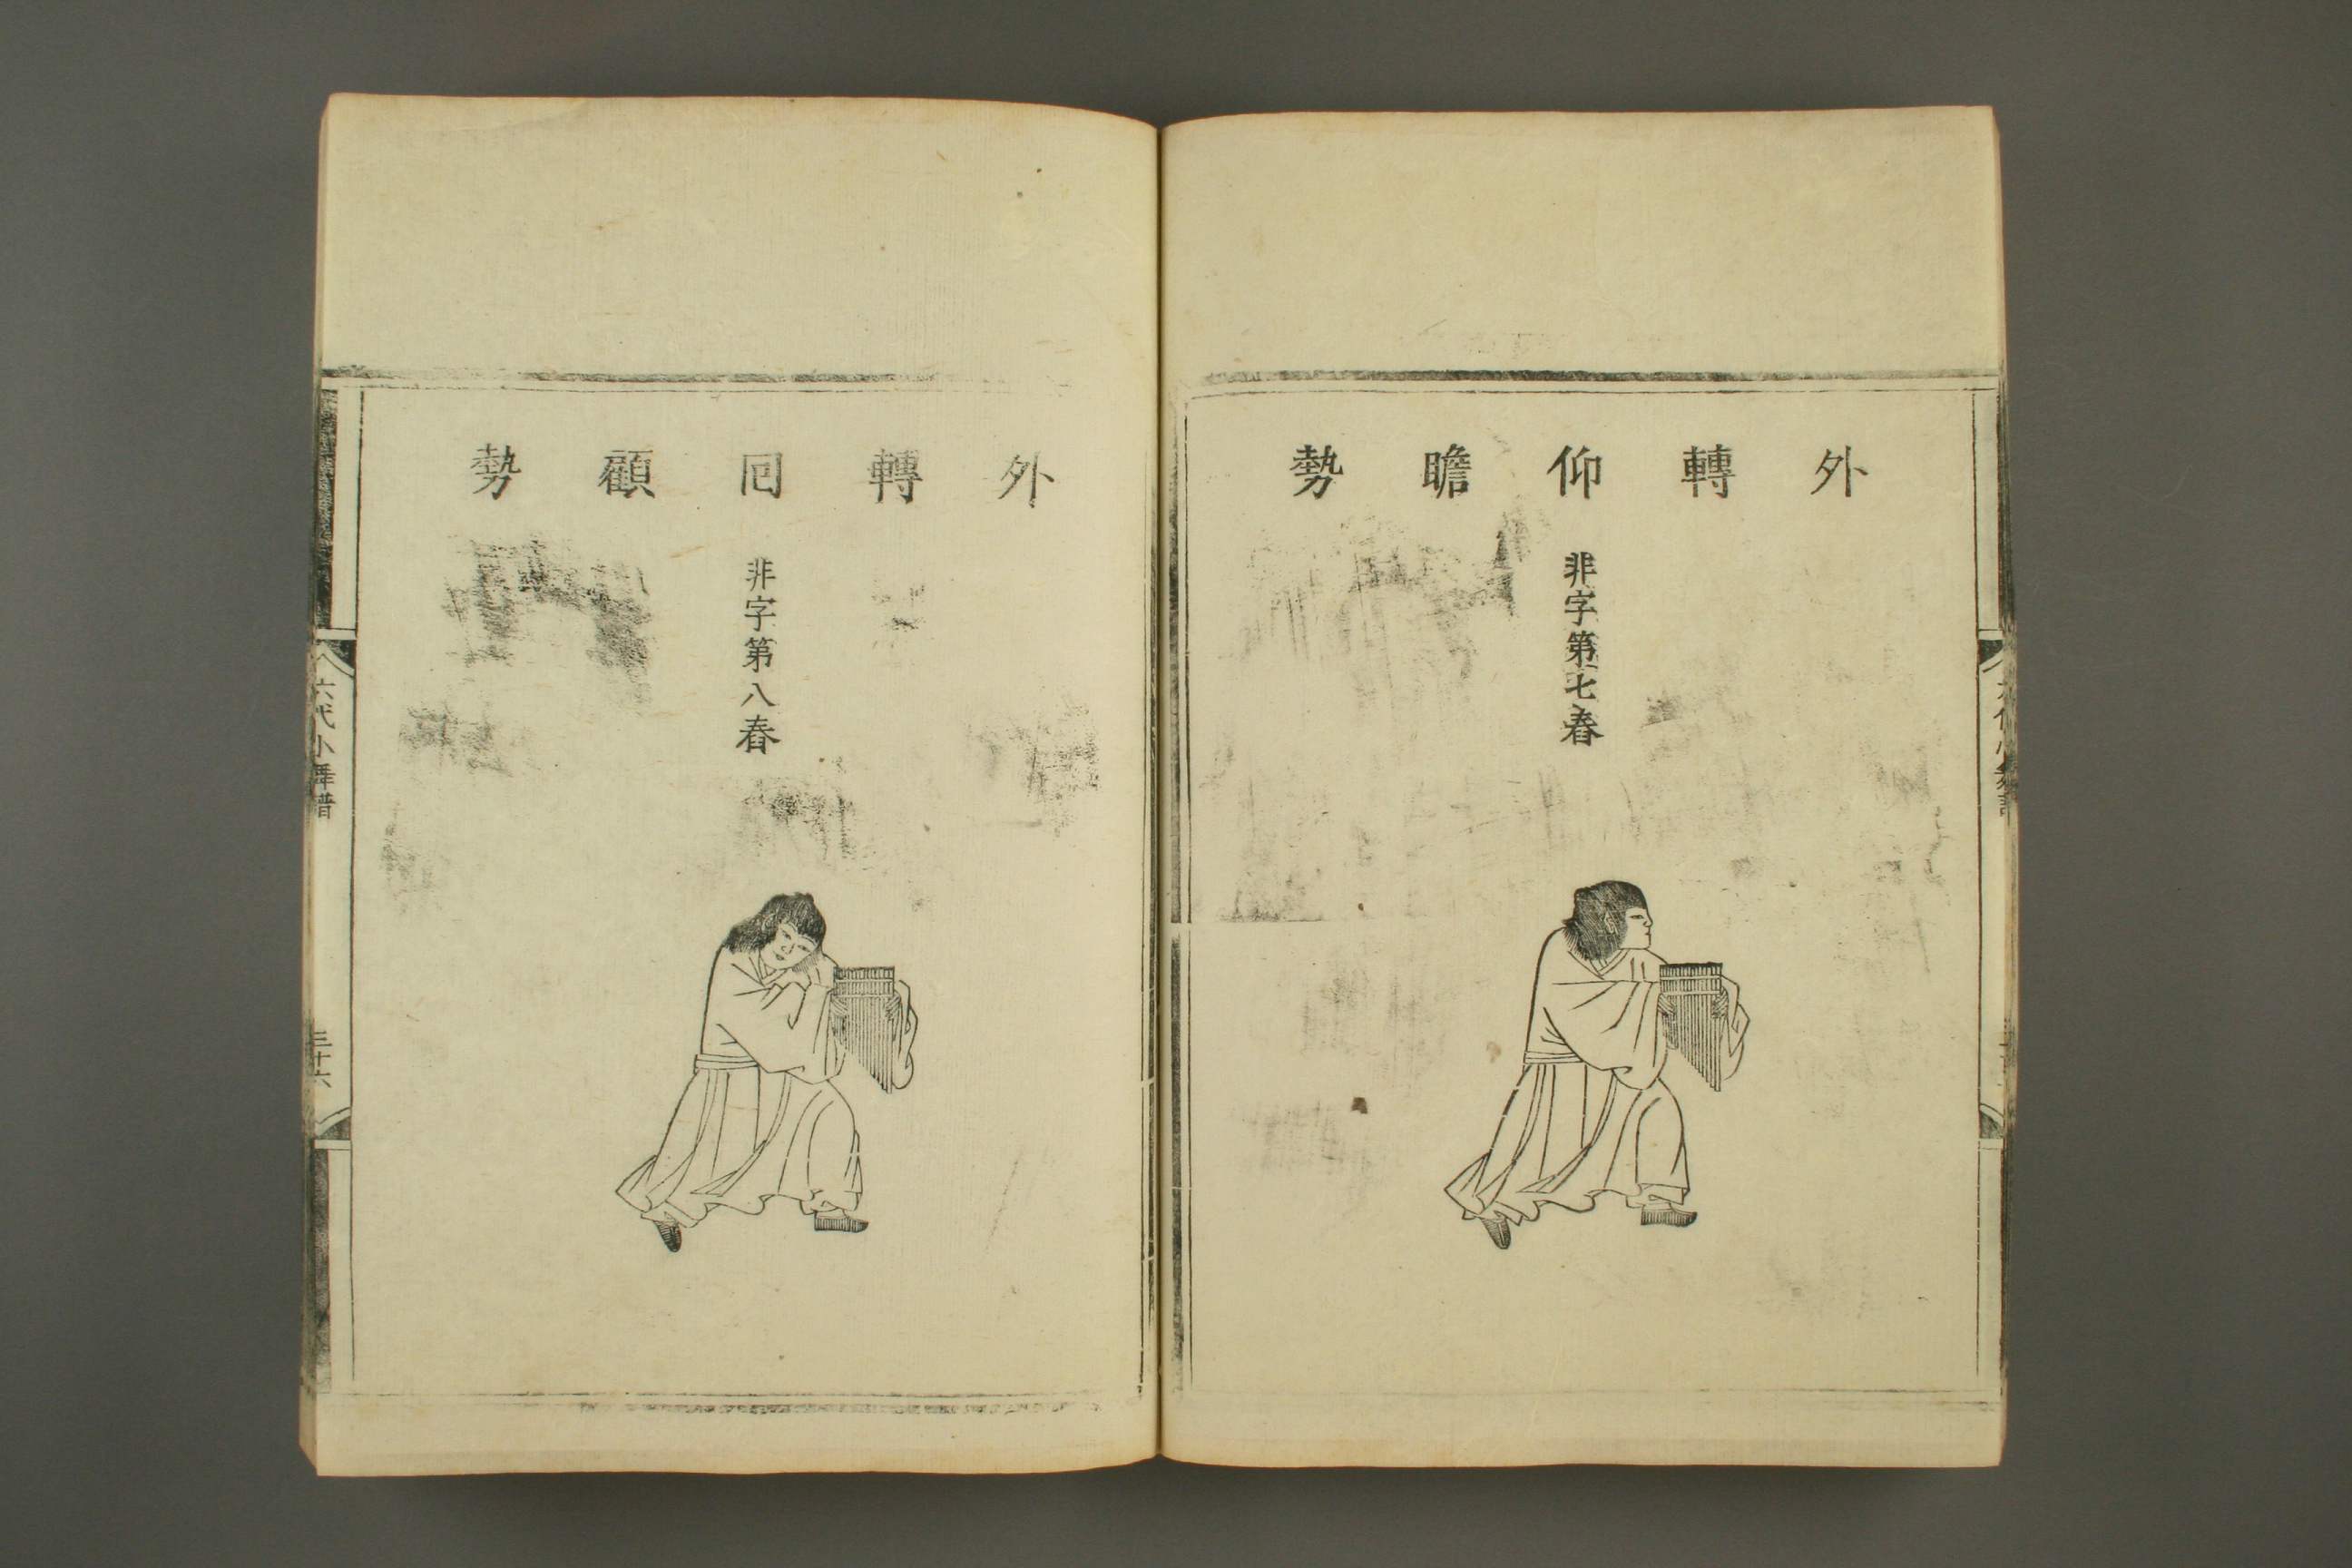 外轉仰瞻勢
非字第七舂
外轉囘顧勢
非字第八舂
六代小舞譜
三十六